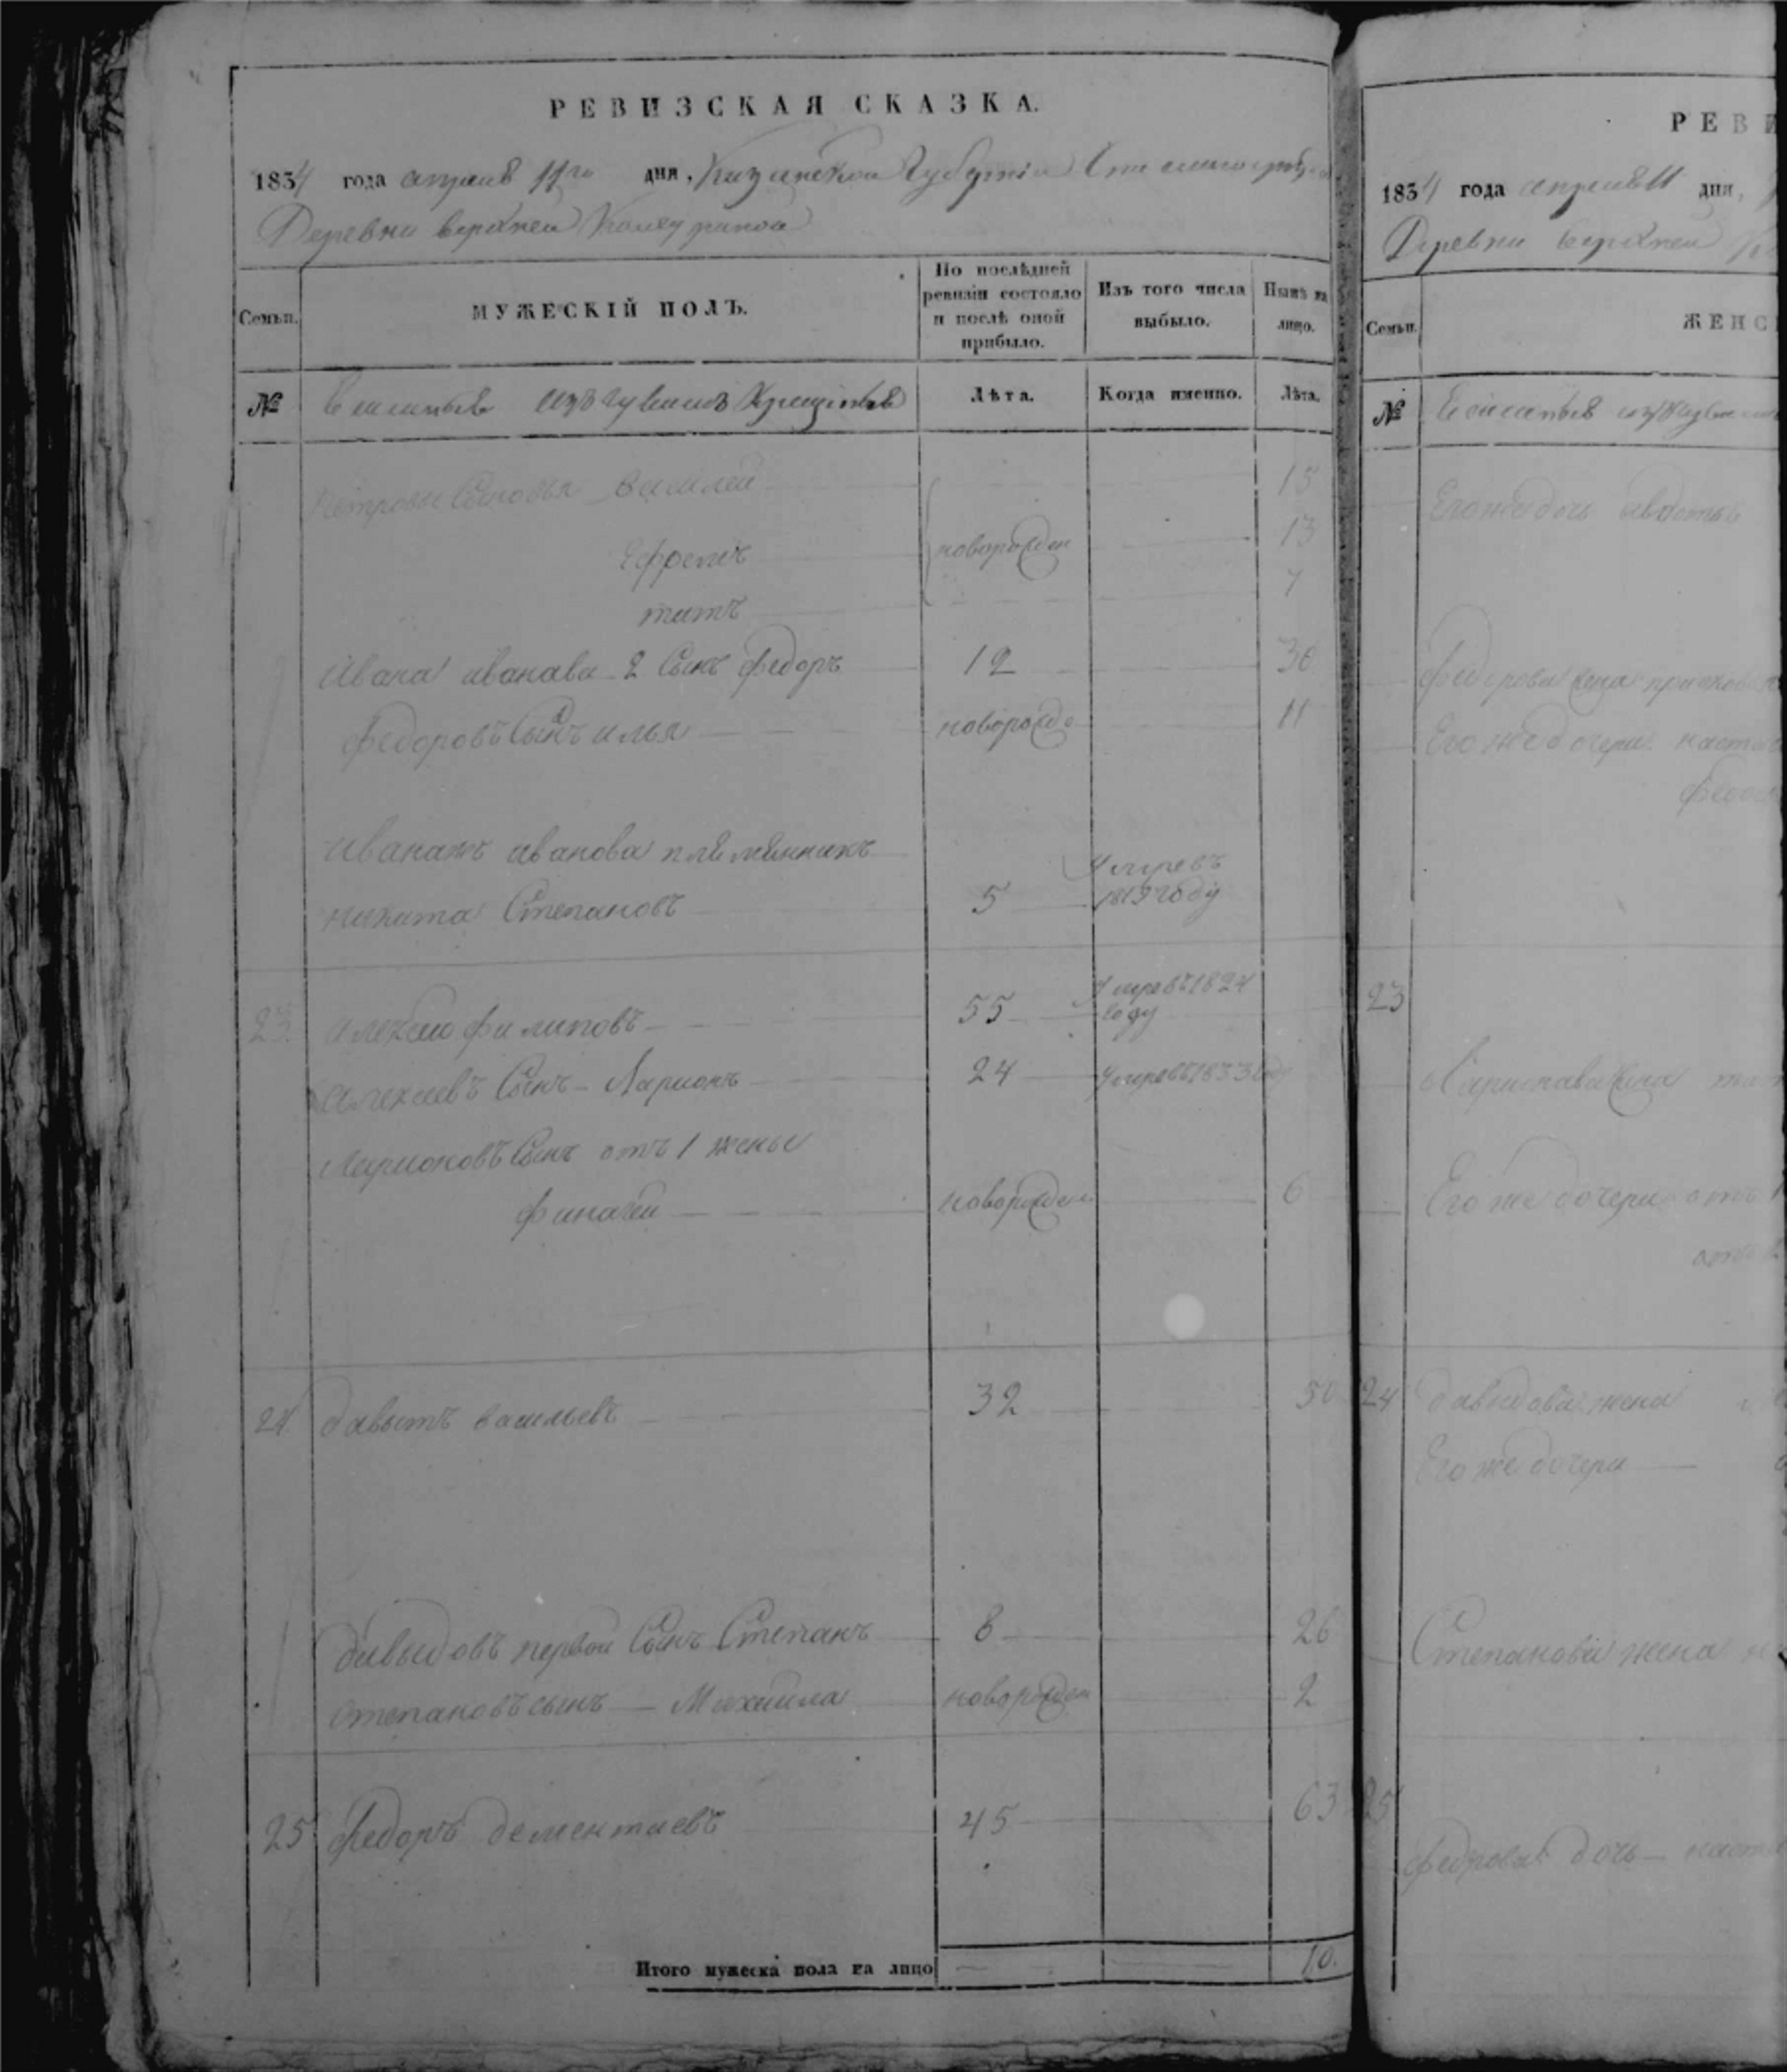 РЕВИЗСКАЯ СКАЗКА.
1834 года апреля 11го дня, Казанской Губернии
Деревни верхней
Семьи.
МУЖЕСКІЙ ПОЛЪ.
По послѣдней ревизіи состояло и послѣ оной прибыло.
Изъ того числа выбыло.
Нынѣ на лицо.
№
изъ чувашъ
Лѣта.
Когда именно.
Лѣта.
Петровы Сыновья Василей 15
Ефремъ новорожден 13
титъ 7
Ивана иванава 2 Сынъ федоръ 12 30
федоровъ Сынъ илья новорожде 11
Иванаж иванова племянникъ
никита Степановъ 5 Умревъ 1819 году
23 алексей филиповъ 55 Умревъ 1824 году
алексеевъ Сынъ Ларионъ 24 умревъ 1833
Ларионовъ Сынъ отъ 1 жены
финагей новорожден 6
24 давытъ васильевъ 32 50
давыдовъ первой Сынъ Степанъ 8 26
степановъ сынъ Михаила новорожден 2
25 Федоръ дементиевъ 45 63
Итого мужеска пола на лицо 10.
РЕВИ
1834 года апреля 11 дня,
Деревни верхней
Семьи.
ЖЕНС
№
Егоже дочь авдотья
Его же дочери
23
Его же дочери отъ 1
24 давыдова жена
Его же дочери
Степанова жена
25
федорова дочь